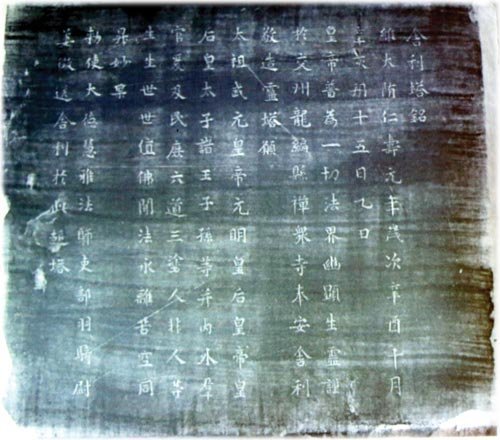 舍利塔銘
維大隋仁壽元年歲次辛酉十月
辛亥朔十五日乙丑
皇帝普為一切法界幽顯生靈謹
於交州龍編縣禪衆寺奉安舍利
敬造靈塔願
太祖武元皇帝元明皇后皇帝皇
后皇太子諸王子孫等并內外羣
官爰及民庶六道三塗人非人等
生生世世值佛聞法永離苦空同
昇妙果
勑使大德慧雅法師吏部羽騎尉
姜徽送舍利於此起塔